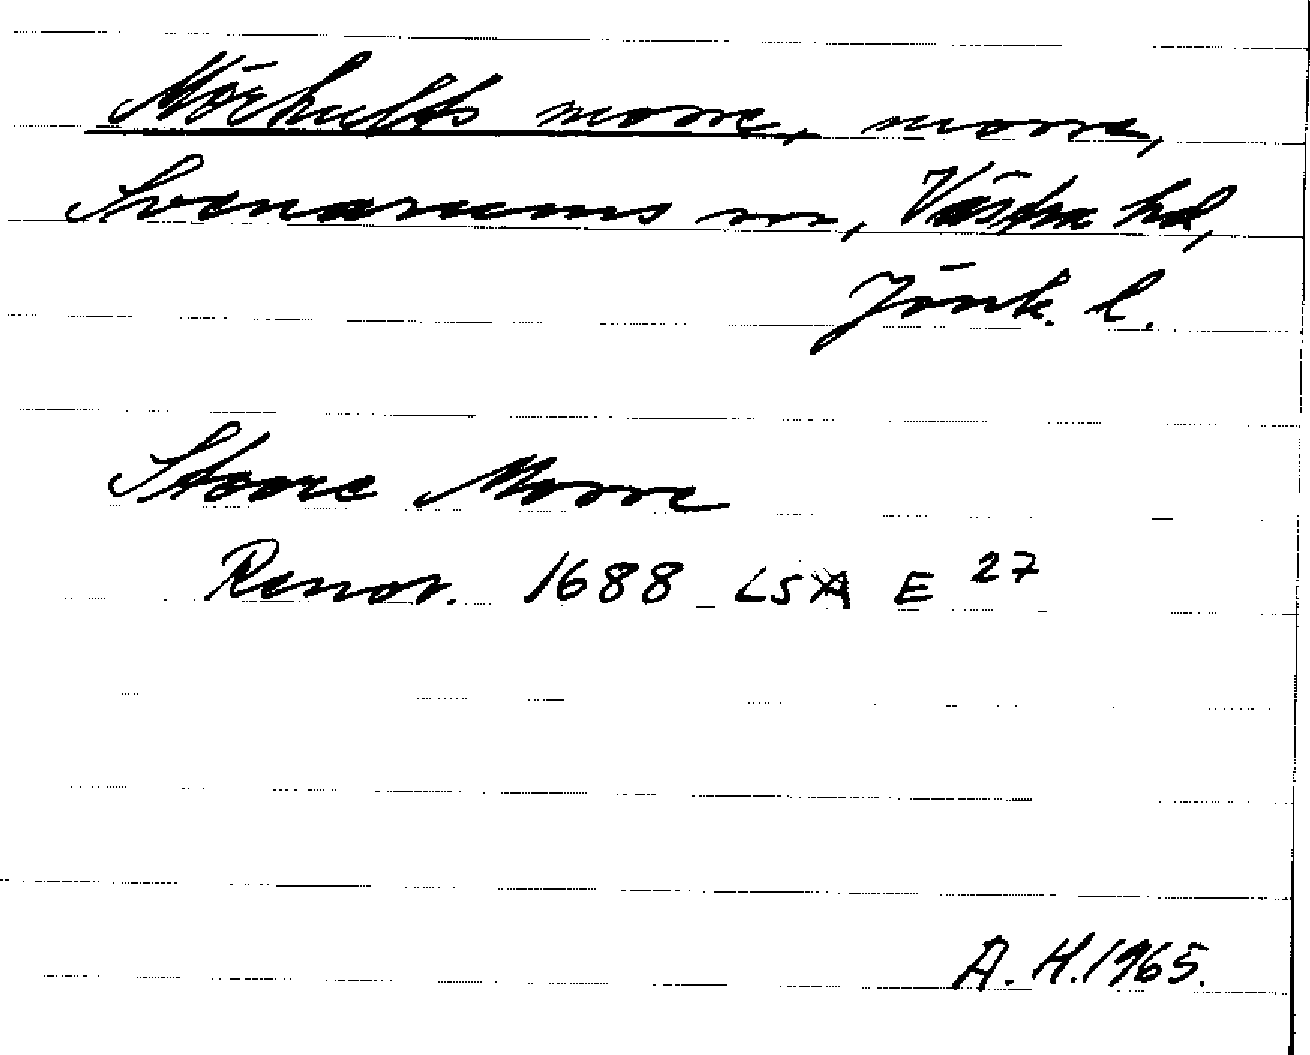 Mörhults mosse, mosse,
Svenarums sn, Västra hd,
Jönk. l.
Stoore Mosse
Renov. 1688 LSA E 27
A. H. 1965.